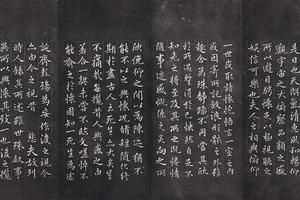 觀宇宙之大俯察品類之盛
所以遊目騁懷足以極視聽之
娛信可樂也夫人之相與俯仰
一世或取諸懷抱悟言一室之內
或因寄所託放浪形骸之外雖
趣舍萬殊靜躁不同當其欣
於所遇暫得於己快然自足不
知老之將至及其所之既惓情
隨事遷感慨係之矣向之所
欣俛仰之間以為陳迹猶不
能不以之興懷況脩短隨化終
期於盡古人云死生亦大矣豈
不痛哉每攬昔人興感之由
若合一契未嘗不臨文嗟悼不
能喻之於懷固知一死生為虛
誕齊彭殤為妄作後之視今
亦由今之視昔悲夫故列
敘時人錄其所述雖世殊事
異所以興懷其致一也後之攬